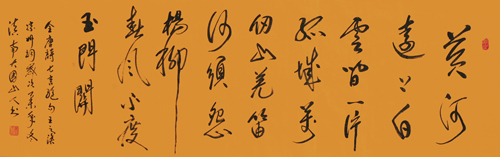 黄河
遠上白
雲間一片
孤城萬
仞山羌笛
何須怨
楊柳
春風不度
玉門關
全唐詩七言絕句王之渙
凉州詞歲次
山人書